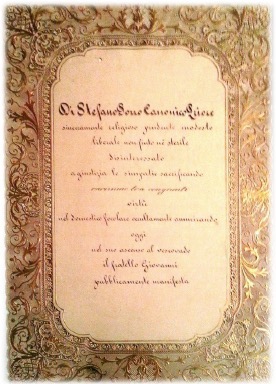 Di Stefano Bono Canonico Priore
sinceramente religioso prudente modesto
liberale non fiato nè sterile
disinteressato
a giudizia le simpatie sacrificando
con
virtù
nel domestico focolare occultamente ammirando
oggi
nel suo ascenso al vescovado
il fratello Giovanni
pubblicamente manifesta